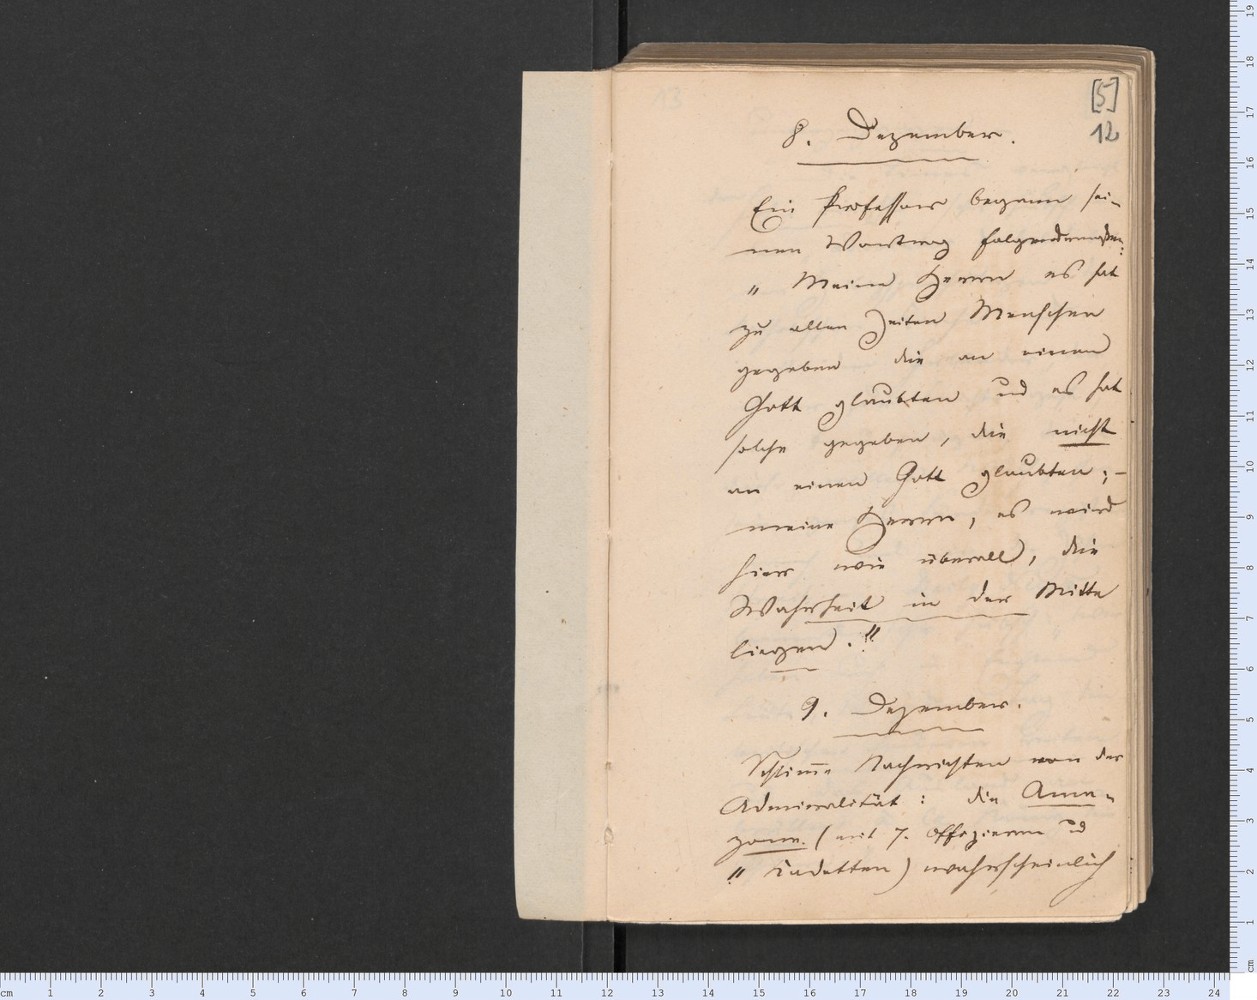 [5]
12
8. Dezember.
Ein Professor begann sei-
nen Vortrag folgendermaßen:
"Meine Herrn es hat
zu allen Zeiten Menschen
gegeben die an einen
Gott glaubten und es hat
solche gegeben, die nicht
an einen Gott glaubten; –
meine Herrn, es wird
hier wie überall, die
Wahrheit in der Mitte
liegen."
9. Dezember.
Schlimme Nachrichten von der
Admiralität: die Ama-
zone (mit 7. Offizieren und
Kadetten) wahrscheinlich